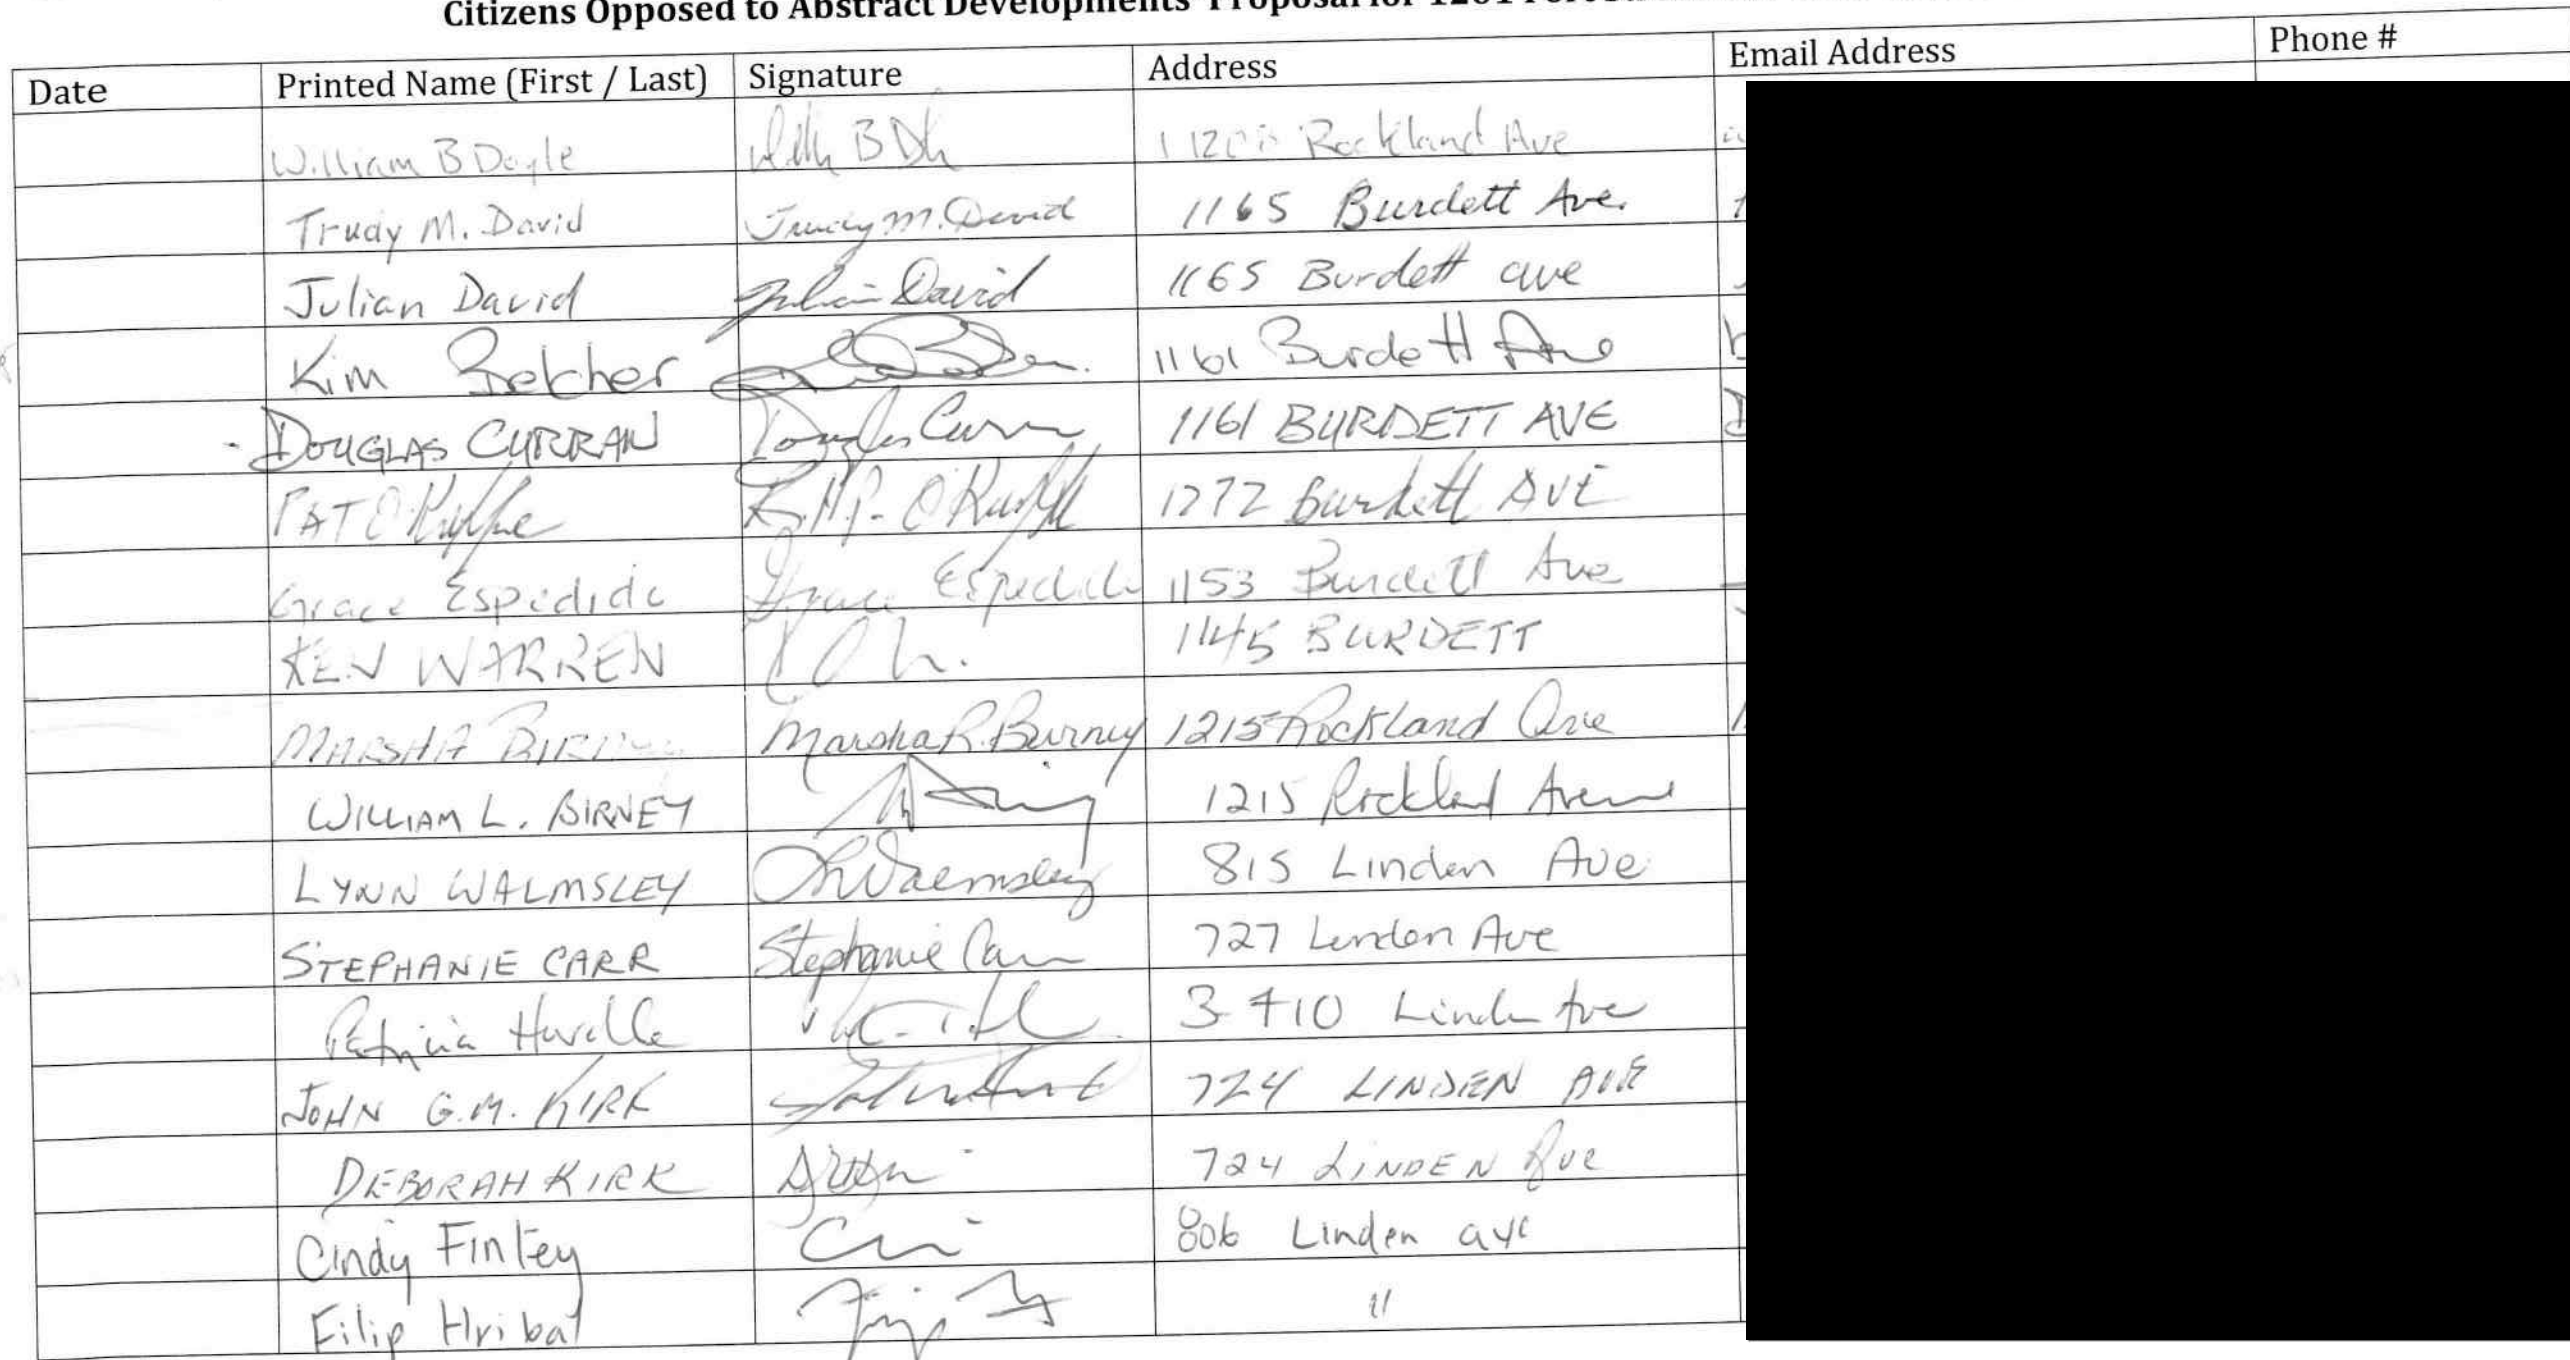 Citizens Opposed to Abstract Developments' Proposal for 1201
Date Printed Name (First / Last) Signature Address Email Address Phone #
William B Doyle Rockland Ave
Trudy M. David Trudy M. David 1165 Burdett Ave.
Julian David Julian David 1165 Burdett ave
Kim Belcher 1161 Burdett Ave
DOUGLAS CURRAN Douglas Curran 1161 BURDETT AVE
PAT O'Keeffe Burdett AVE
Grace Espedido Grace Espedido 1153 Burdett Ave
KEN WARREN 1145 BURDETT
MARSHA BIRNEY Marsha R. Birney 1215 Rockland Ave
WILLIAM L. BIRNEY 1215 Rockland Avenue
LYNN WALMSLEY L Walmsley 815 Linden Ave
STEPHANIE CARR Stephanie Carr 727 Linden Ave
Patricia Linden Ave
JOHN G.M. KIRK 724 LINDEN AVE
DEBORAH KIRK 724 LINDEN Ave
Cindy Finley 806 Linden ave
Filip Hribal "